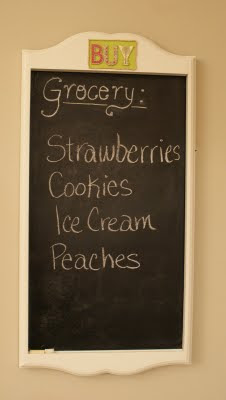 BUY
Grocery:
Strawberries
Cookies
Ice Cream
Peaches